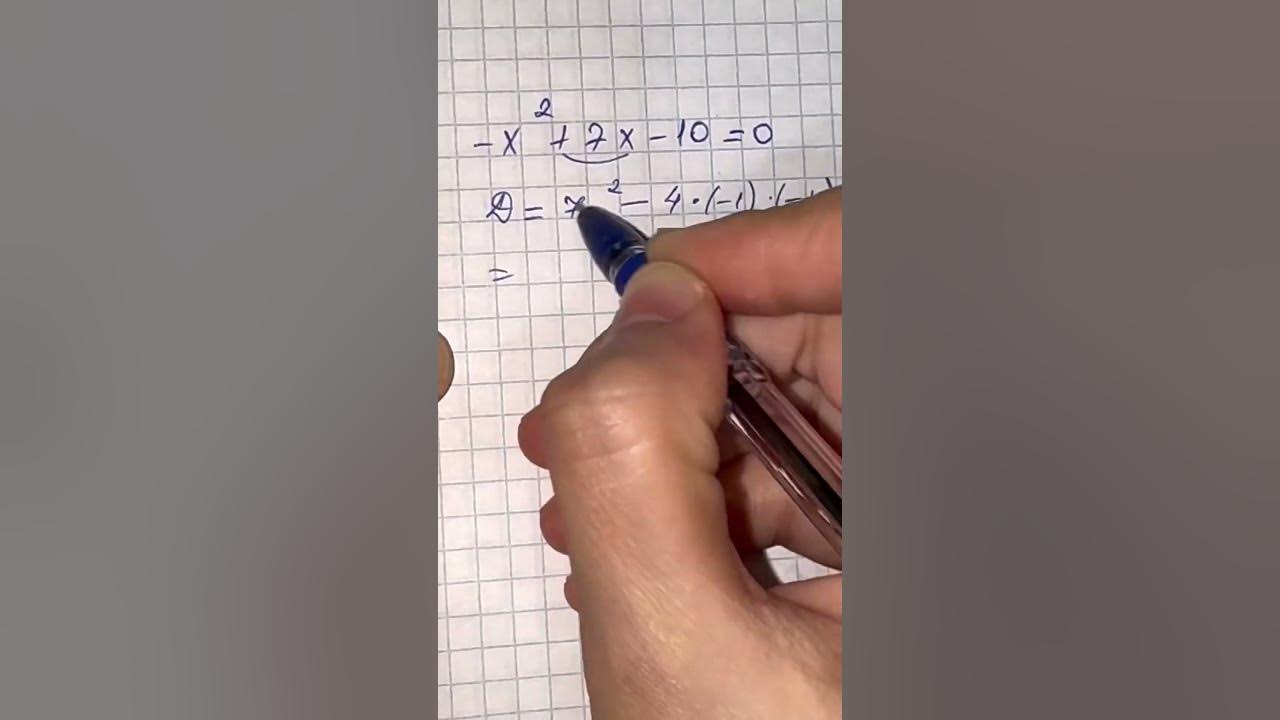 -x² + 7x - 10 = 0
D = 7² - 4 · (-1) · (-1
=